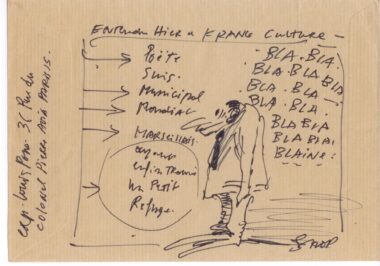 Entendu Hier a France Culture –
Poète
Suis.
Municipal
Mondial
MARSEILLAIS
ayant
enfin Trouvé
un Petit
Refuge.
BLA. BLA.
BLA BLA BLA
BLA. BLA
BLA. BLA.
BLA BLA
BLA BLA.
BLAINE!
exp. Louis Pons 36 Rue du
colonel Pierre Avia PARIS